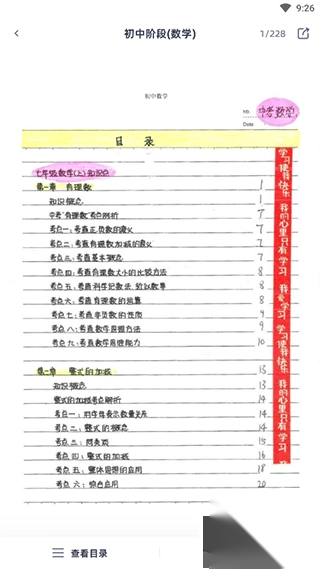 9:26
初中阶段(数学)
1/228
初中数学
No.
中考数学
Date
目 录
七年级数学(上)知识点
第一章 有理数 1
知识概念 1
中考有理数考点剖析 7
考点一:考查正负数的意义 7
考点二:考查有理数加减的意义 7
考点三:考查基本概念 7
考点四:考查有理数大小的比较方法 8
考点五:考查科学记数法、近似数等 8
考点六:考查有理数的运算 8
考点七:考查非负数的性质
考点八:考查数学思想方法 9
考点九:考查数学思维能力 10
第二章 整式的加减 13
知识概念 13
整式的加减考点剖析 14
考点一:用字母表示数量关系 14
考点二:整式的概念 14
考点三:同类项 15
考点四:整式的加减 16
考点五:整体思想的应用 18
考点六:综合应用 20
学习使我快乐 我的心里只有学习 我爱学习 学习使我快乐 我的心里只有学习
查看目录